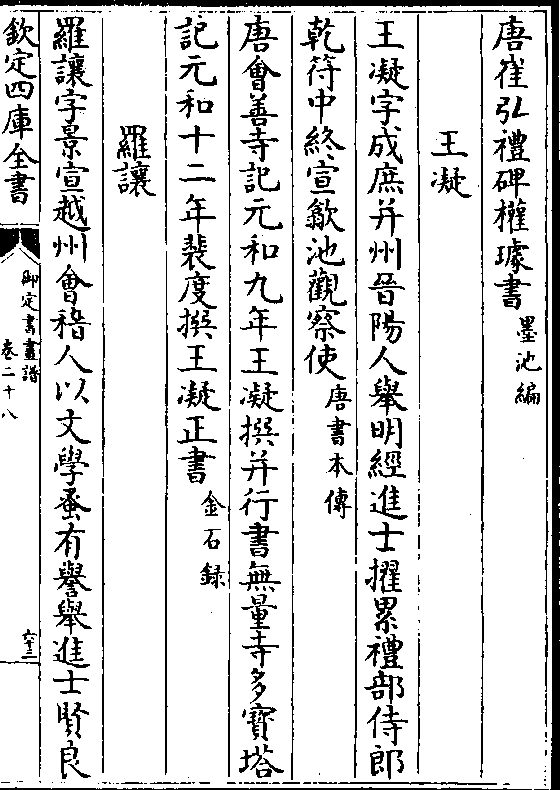 唐崔弘禮碑權璩書墨池編
王凝
王凝字成庶并州晉陽人舉明經進士擢累禮部侍郎
乾符中終宣歙池觀察使唐書本傳
唐會善寺記元和九年王凝撰并行書無量寺多寶塔
記元和十二年裴度撰王凝正書金石録
羅讓
羅讓字景宣越州會稽人以文學蚤有譽舉進士賢良
欽定四庫全書
御定書畫譜
卷二十八
六十三